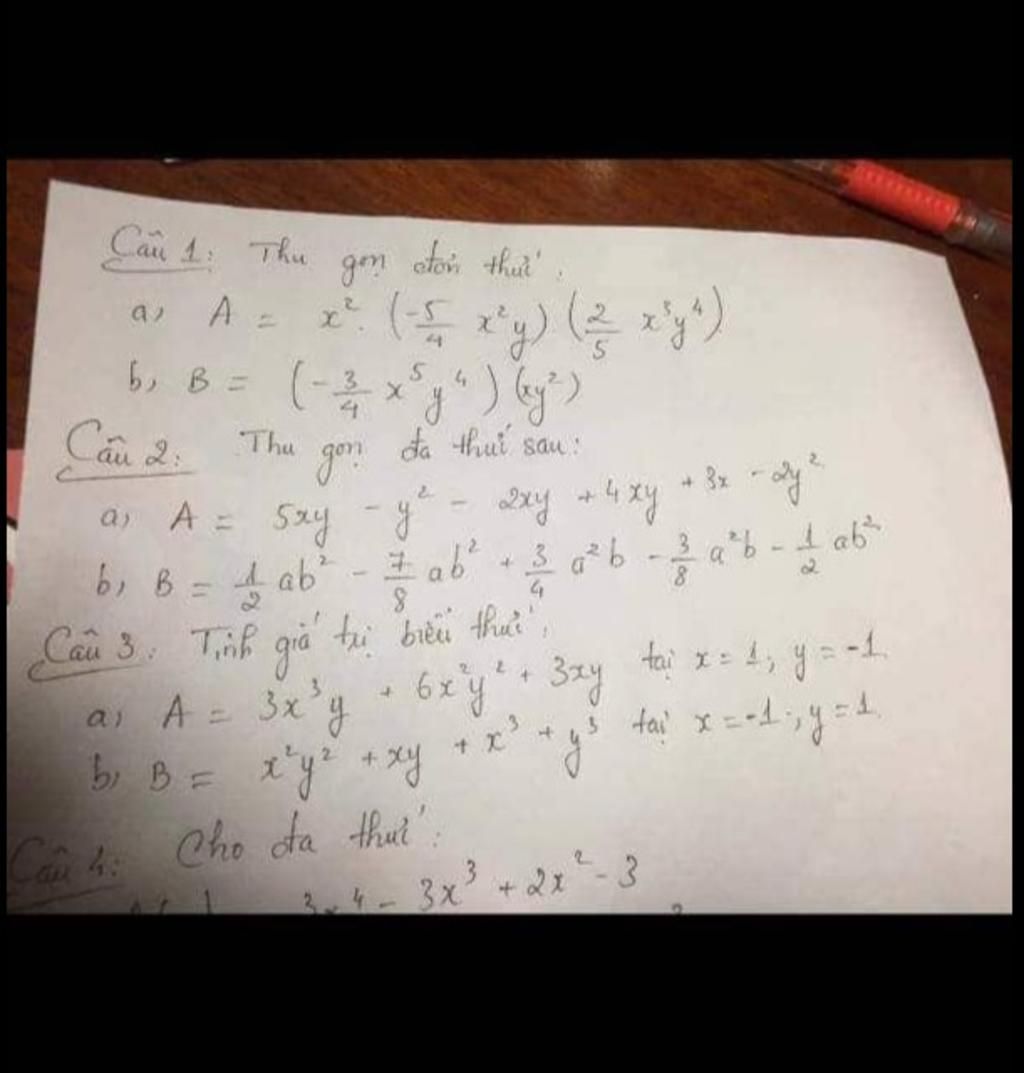 Câu 1: Thu gọn đơn thức:
a, A = x². (-5/4 x²y) (2/5 x³y⁴)
b, B = (-3/4 x⁵y⁴) (xy²)
Câu 2: Thu gọn đa thức sau:
a, A = 5xy - y² - 2xy + 4xy + 3x - 2y²
b, B = 1/2 ab² - 7/8 ab² + 3/4 a²b - 3/8 a²b - 1/2 ab²
Câu 3: Tính giá trị biểu thức:
a, A = 3x³y + 6x²y² + 3xy tại x = 1; y = -1
b, B = x²y² + xy + x³ + y³ tại x = -1; y = 1
Câu 4: Cho đa thức:
3x⁴ - 3x³ + 2x² - 3